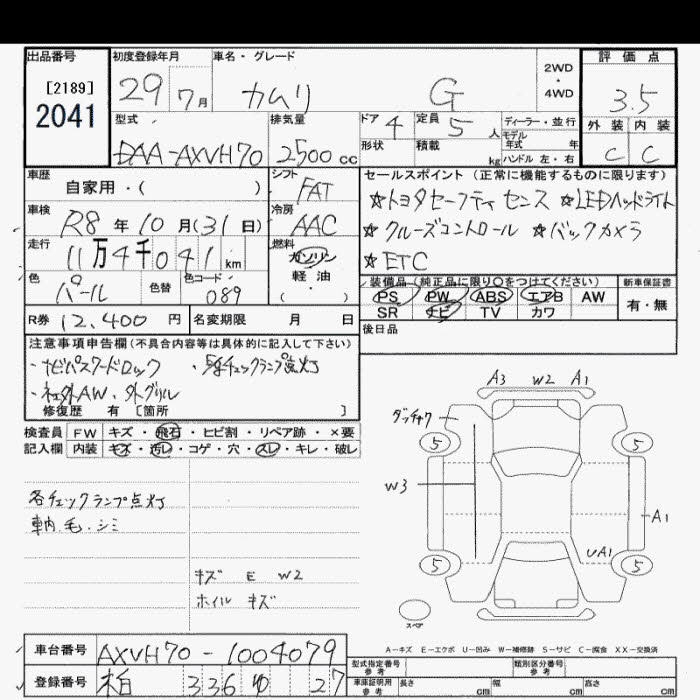 出品番号 初度登録年月 車名・グレード 評価点
[2189] 2041
29 7月 カムリ G 2WD・4WD 3.5
型式 排気量 ドア 4 定員 5人 ディーラー・並行 外装 内装
DAA-AXVH70 2500cc 形状 積載 kg モデル年式 年 ハンドル 左・右 C C
車歴 自家用・( ) シフト FAT セールスポイント (正常に機能するものに限ります)
☆トヨタセーフティセンス ☆LEDヘッドライト
車検 R8年10月(31日) 冷房 AAC ☆クルーズコントロール ☆バックカメラ
走行 11万4千041km 燃料 ガソリン 軽油・( ) ☆ETC
色 パール 色替 色コード 089 装備品 (純正品に限り○をつけてください) 新車保証書
PS PW ABS エアB AW 有・無
SR ナビ TV カワ
R券 12,400円 名変期限 月 日 後日品
注意事項申告欄 (不具合内容等は具体的に記入して下さい)
・ナビパスワードロック ・各チェックランプ点灯
・社外AW、外グリル
修復歴 有 [箇所 ]
検査員 FW キズ・飛石・ヒビ割・リペア跡・×要
記入欄 内装 キズ・汚レ・コゲ・穴・スレ・キレ・破レ
A3 W2 A1
ダッチャク
5 5
各チェックランプ点灯 W3
車内 毛・シミ A1
UA1
5 5
キズ E W2
ホイルキズ
スペア
A-キズ E-エクボ U-凹み W-補修跡 S-サビ C-腐食 XX-交換済
車台番号 AXVH70-1004079 型式指定番号 参考 類別区分番号 参考
登録番号 柏 336 ゆ 27 車庫証明用 参考 長さ cm 幅 cm 高さ cm